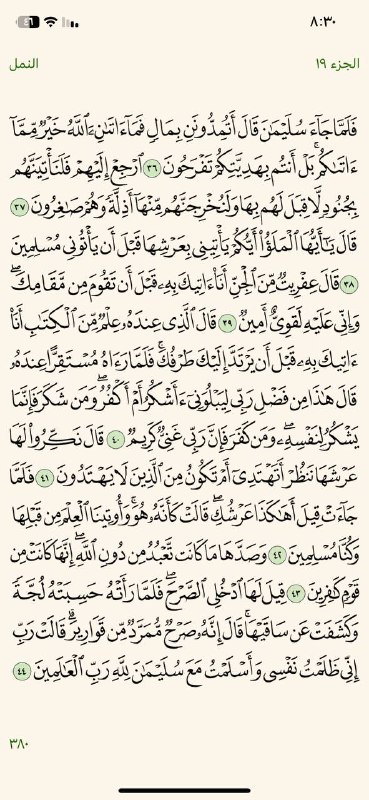 ٨:٣٠
٤٦
الجزء ١٩
النمل
فَلَمَّا جَآءَ سُلَيْمَٰنَ قَالَ أَتُمِدُّونَنِ بِمَالٍ فَمَآ ءَاتَىٰنِۦَ ٱللَّهُ خَيْرٌ مِّمَّآ
ءَاتَىٰكُم بَلْ أَنتُم بِهَدِيَّتِكُمْ تَفْرَحُونَ ٣٦ ٱرْجِعْ إِلَيْهِمْ فَلَنَأْتِيَنَّهُم
بِجُنُودٍ لَّا قِبَلَ لَهُم بِهَا وَلَنُخْرِجَنَّهُم مِّنْهَآ أَذِلَّةً وَهُمْ صَٰغِرُونَ ٣٧
قَالَ يَٰٓأَيُّهَا ٱلْمَلَؤُا۟ أَيُّكُمْ يَأْتِينِى بِعَرْشِهَا قَبْلَ أَن يَأْتُونِى مُسْلِمِينَ
٣٨ قَالَ عِفْرِيتٌ مِّنَ ٱلْجِنِّ أَنَا۠ ءَاتِيكَ بِهِۦ قَبْلَ أَن تَقُومَ مِن مَّقَامِكَ ۖ
وَإِنِّى عَلَيْهِ لَقَوِىٌّ أَمِينٌ ٣٩ قَالَ ٱلَّذِى عِندَهُۥ عِلْمٌ مِّنَ ٱلْكِتَٰبِ أَنَا۠
ءَاتِيكَ بِهِۦ قَبْلَ أَن يَرْتَدَّ إِلَيْكَ طَرْفُكَ ۚ فَلَمَّا رَءَاهُ مُسْتَقِرًّا عِندَهُۥ
قَالَ هَٰذَا مِن فَضْلِ رَبِّى لِيَبْلُوَنِىٓ ءَأَشْكُرُ أَمْ أَكْفُرُ ۖ وَمَن شَكَرَ فَإِنَّمَا
يَشْكُرُ لِنَفْسِهِۦ ۖ وَمَن كَفَرَ فَإِنَّ رَبِّى غَنِىٌّ كَرِيمٌ ٤٠ قَالَ نَكِّرُوا۟ لَهَا
عَرْشَهَا نَنظُرْ أَتَهْتَدِىٓ أَمْ تَكُونُ مِنَ ٱلَّذِينَ لَا يَهْتَدُونَ ٤١ فَلَمَّا
جَآءَتْ قِيلَ أَهَٰكَذَا عَرْشُكِ ۖ قَالَتْ كَأَنَّهُۥ هُوَ ۚ وَأُوتِينَا ٱلْعِلْمَ مِن قَبْلِهَا
وَكُنَّا مُسْلِمِينَ ٤٢ وَصَدَّهَا مَا كَانَت تَّعْبُدُ مِن دُونِ ٱللَّهِ ۖ إِنَّهَا كَانَتْ مِن
قَوْمٍ كَٰفِرِينَ ٤٣ قِيلَ لَهَا ٱدْخُلِى ٱلصَّرْحَ ۖ فَلَمَّا رَأَتْهُ حَسِبَتْهُ لُجَّةً
وَكَشَفَتْ عَن سَاقَيْهَا ۚ قَالَ إِنَّهُۥ صَرْحٌ مُّمَرَّدٌ مِّن قَوَارِيرَ ۗ قَالَتْ رَبِّ
إِنِّى ظَلَمْتُ نَفْسِى وَأَسْلَمْتُ مَعَ سُلَيْمَٰنَ لِلَّهِ رَبِّ ٱلْعَٰلَمِينَ ٤٤
٣٨٠